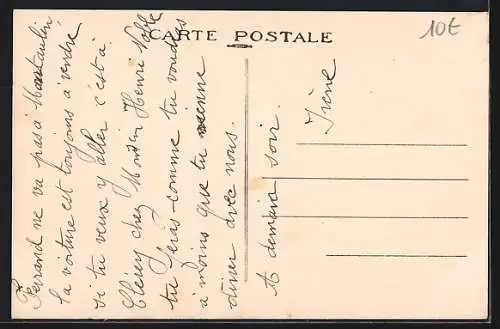 CARTE POSTALE
10€
Ferrand ne va pas à
la voiture est toujours à vendre
si tu veux y aller c'est à
Cléry chez Monsieur Henri
tu feras comme tu voudras
à moins que tu vienne
dîner avec nous.
A demain soir.
Irène